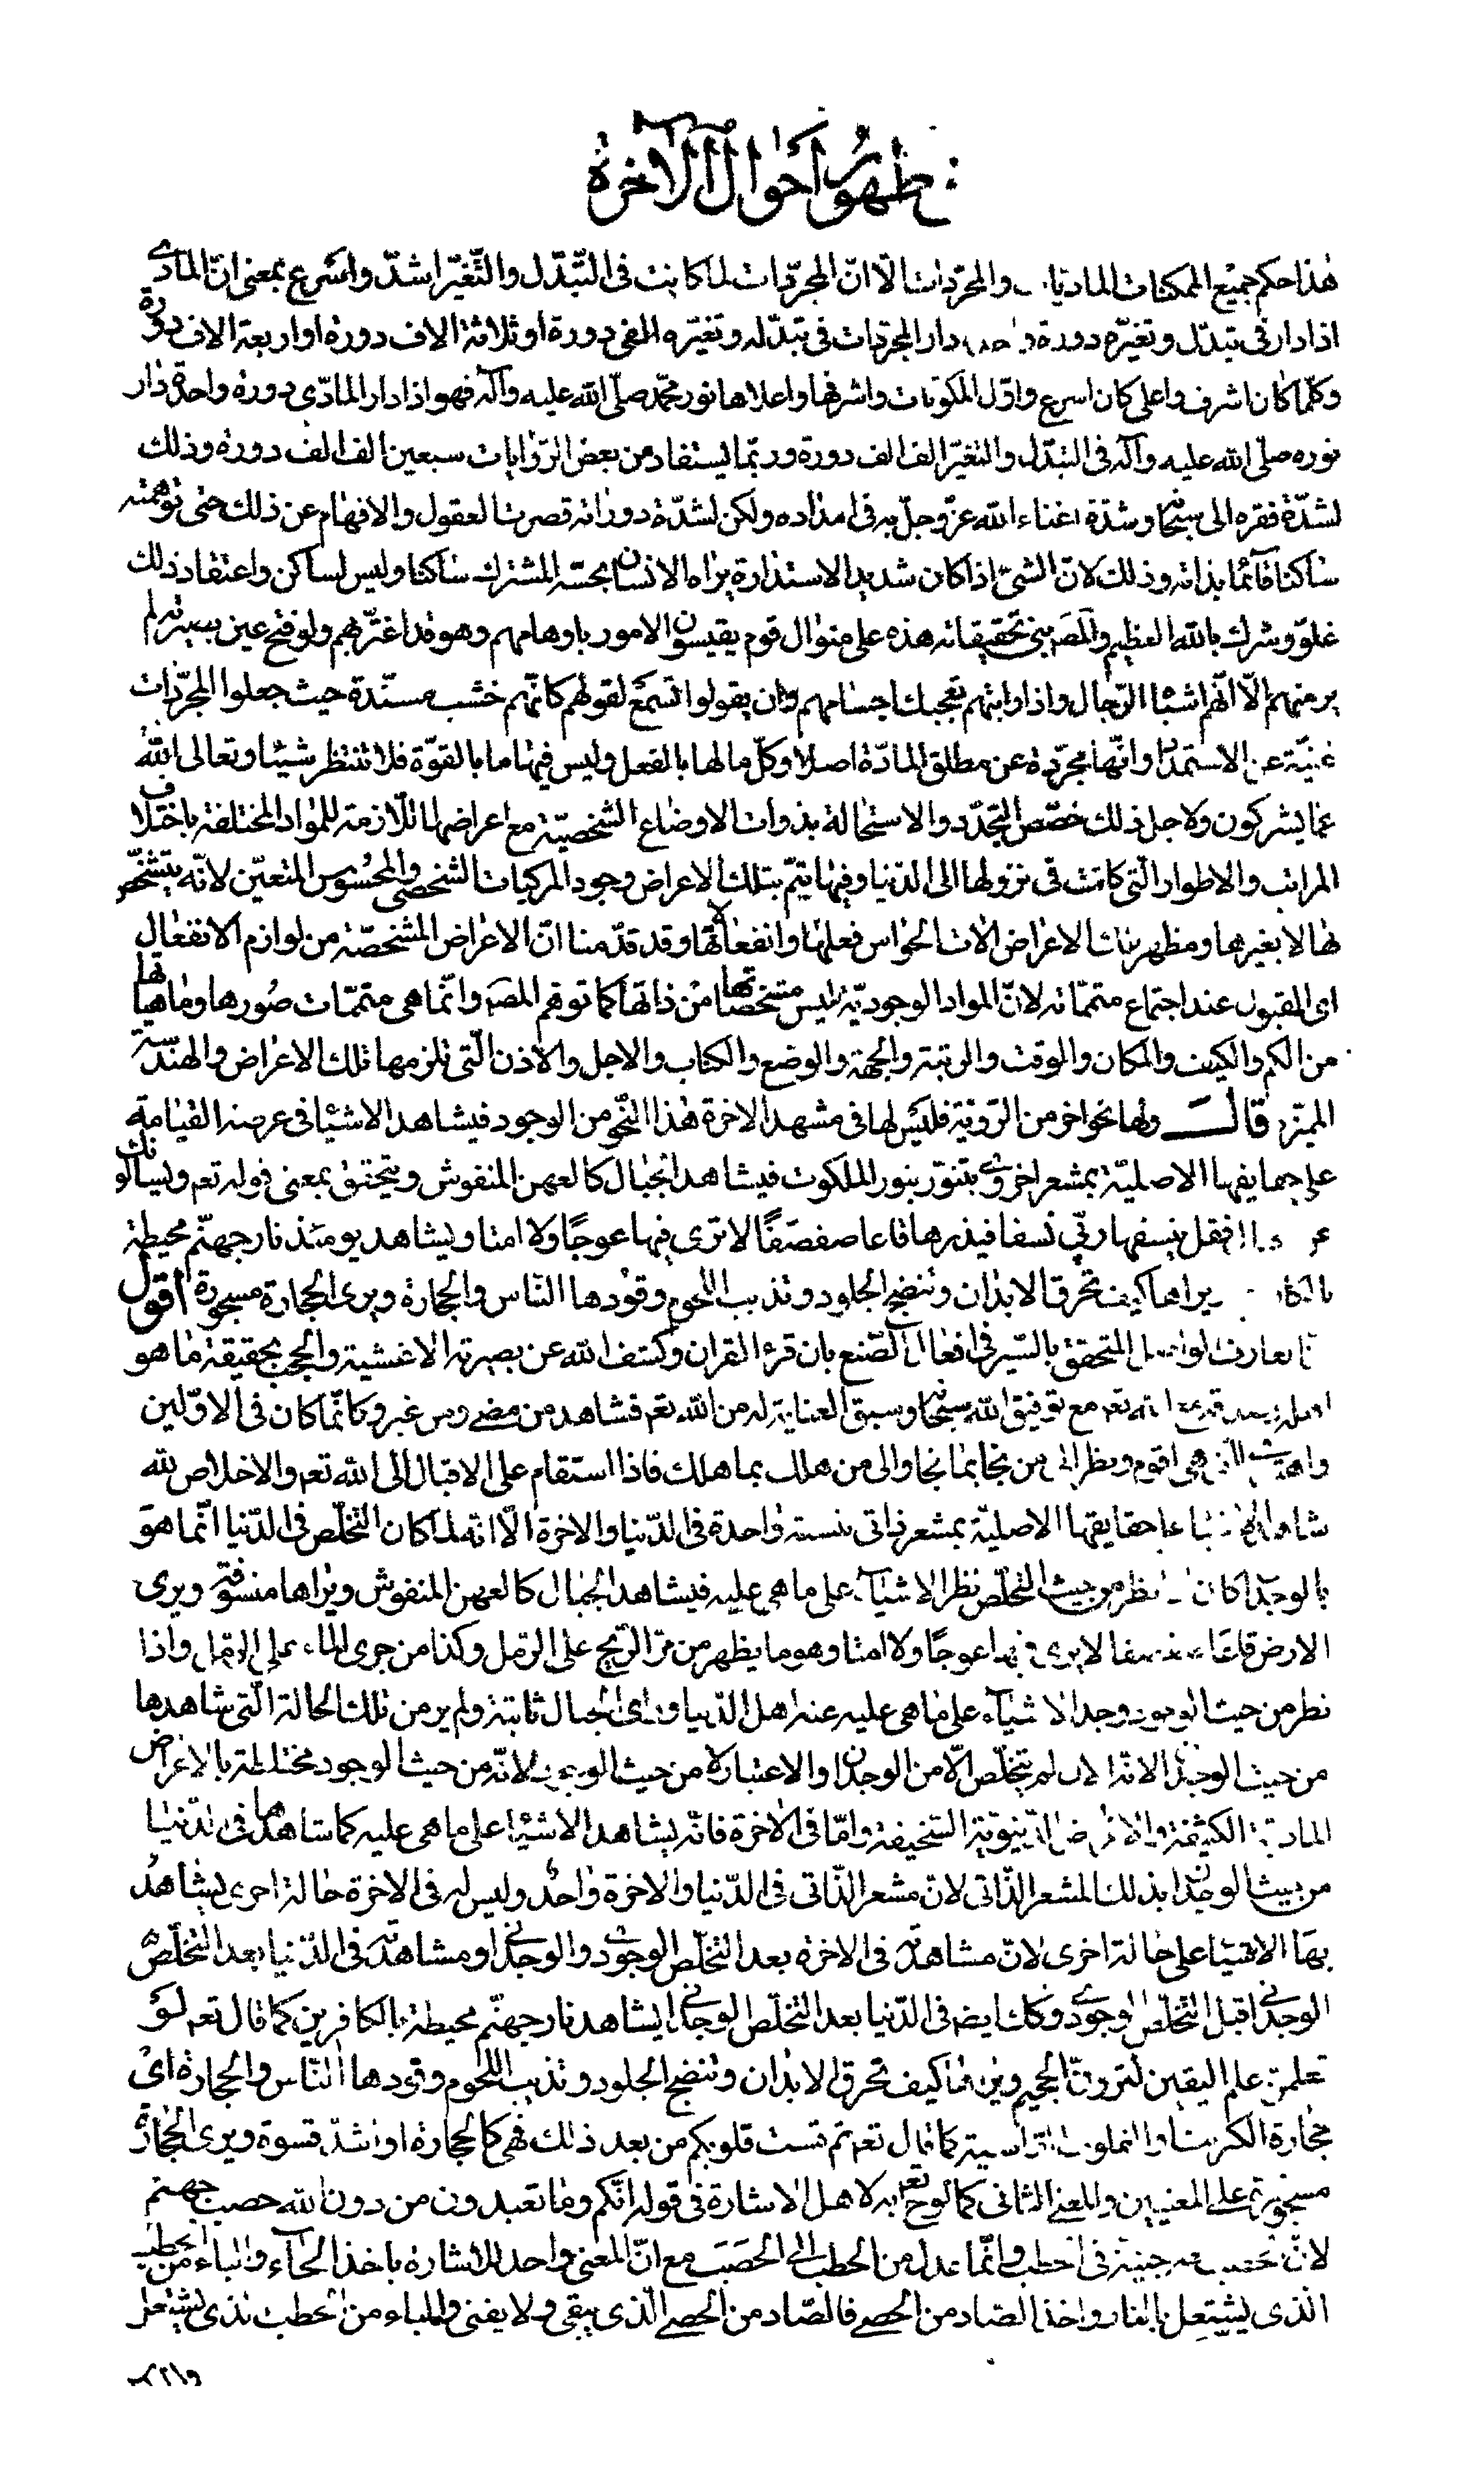 ظهور احوال الآخرة
هذا حكم جميع الممكنات الماديات والمجرّدات الّا انّ المجرّدات لما كانت فى التّبدّل والتّغيّر اشدّ واسرع بمعنى انّ المادّى
اذا دار فى تبدّل وتغيّره دورة دار المجرّدات فى تبدّله وتغيّره الفى دورة او ثلاثة الاف دورة او اربعة الاف دورة
وكلّما كان اشرف واعلى كان اسرع واوّل المكوّنات واشرفها واعلاها نور محمّد صلّى الله عليه وآله فهو اذا دار المادّى دورة واحدة دار
نوره صلى الله عليه وآله فى التبدّل والتغيّر الف الف دورة وربّما يستفاد من بعض الرّوايات سبعين الف الف دورة وذلك
لشدّة فقره الى سبحانه وشدّة اغناء الله عزّ وجلّ به فى امداده ولكن لشدّة دورانه قصرت العقول والافهام عن ذلك حتى توهّمته
ساكنا قآئما بذاته وذلك لانّ الشئ اذا كان شديد الاستدارة يراه الانسان بحسّه المشترك ساكنا وليس لساكن واعتقاد ذلك
غلوّ وشرك بالله العظيم والمصَ بنى تحقيقاته هذه على منوال قوم يقيسون الامور باوهامهم وهو قد اغترّ بهم ولو فتح عين بصيرته لم
ير منهم الّا انّهم اشباه الرّجال واذا رايتهم تعجبك اجسامهم وان يقولوا تسمع لقولهم كانّهم خشب مسنّدة حيث جعلوا المجرّدات
غنيّة عن الاستمداد وانّها مجرّدة عن مطلق المادّة اصلا وكلّ ما لها بالفعل وليس فيها ما بالقوّة فلا تنتظر شيئا وتعالى الله
عمّا يشركون ولاجل ذلك خصّص التّجدّد والاستحالة بذوات الاوضاع الشخصيّة مع اعراضها اللّازمة للموادّ المختلفة باختلاف
المراتب والاطوار الّتى كانت فى نزولها الى الدّنيا وفيها يتمّ بتلك الاعراض وجود المركبات الشخصى والمحسوس المتعيّن لانّه يتشخّص
بها لا بغيرها ومظهر بتلك الاعراض الات الحواس فعلها وانفعالاتها وقد قدّمنا انّ الاعراض المشخصّة من لوازم الانفعال
اى المقبول عند اجتماع متمماته لانّ المواد الوجوديّة ليس متشخصاتها من ذاتها كما توهم المصَ وانّما هى متممّات صورها وماهيّاتها
من الكم والكيف والمكان والوقت والرتبة والجهة والوضع والكتاب والاجل والاذن الّتى تلزمها تلك الاعراض والهندسة
المميّزة قال ولها نحو اخر من الرّؤية فليس لها فى مشهد الاخرة هذا النّحو من الوجود فيشاهد الاشيآ فى عرصة القيامة
على حقايقها الاصليّة بمشعر اخروى يتنوّر بنور الملكوت فيشاهد الجبال كالعهن المنفوش ويتحقق بمعنى قوله تعم ويسالونك
فقل ينسفها ربّى نسفا فيذرها قاعا صفصفًا لا ترى فيها عوجًا ولا امتا ويشاهد يومئذ نار جهنّم محيطة
يراها كيف تحرق الابدان وتنضج الجلود وتذيب اللّحوم وقودها النّاس والحجارة ويرى الحجارة مسجورة اقول
المتحقق بالسّير فى افعال الصّنع بان قرء القران وكشف الله عن بصيرته الاغشية والحجب بحقيقة ما هو
مع توفيق الله سبحانه وسبق العناية له من الله تعم فشاهد من مضى ومن غبر وكانّما كان فى الاوّلين
هى اقوم ونظر الى من نجا بما نجا والى من هلك بما هلك فاذا استقام على الاقبال الى الله تعم والاخلاص لله
حقايقها الاصليّة بمشعر ذاتى بنسبة واحدة فى الدّنيا والاخرة الّا انّه لمّا كان التخلّص فى الدّنيا انّما هو
نظر من حيث التخلّص نظر الاشيآء على ما هى عليه فيشاهد الجبال كالعهن المنفوش ويراها منسوفة ويرى
الارض قاعًا لا يرى فيها عوجًا ولا امتا وهو ما يظهر من مرّ الرّيح على الرمل وكذا من جرى الماء على الرمل واذا
نظر من حيث الوجود وجد الاشيآء على ما هى عليه عند اهل الدّنيا وراى الجبال ثابتة ولم ير من تلك الحالة الّتى شاهدها
من حيث الوجدان لانّه الان لم يتخلّص الّا من الوجدان والاعتبار لا من حيث الوجود لانّه من حيث الوجود مختلط بالاعراض
الماديّة الكثيفة والاغراض الدّنيويّة السّخيفة وامّا فى الاخرة فانّه يشاهد الاشيآء على ما هى عليه كما شاهدها فى الدّنيا
من حيث الوجدان بذلك المشعر الذّاتى لانّ مشعر الذّاتى فى الدّنيا والاخرة واحد وليس له فى الاخرة حالة اخرى يشاهد
بها الاشيآ على حالة اخرى لانّ مشاهدته فى الاخرة بعد التخلّص الوجودى والوجدانى ومشاهدته فى الدّنيا بعد التخلّص
الوجدانى قبل التخلّص الوجودى وكك ايضه فى الدّنيا بعد التخلّص الوجدانى يشاهد نار جهنّم محيطة بالكافرين كما قال تعم لو
تعلمون علم اليقين لترونّ الجحيم ويراها كيف تحرق الابدان وتنضج الجلود وتذيب اللّحوم وقودها النّاس والحجارة اى
حجارة الكبريت والقلوب القاسية كما قال تعم ثم قست قلوبكم من بعد ذلك فهى كالحجارة او اشدّ قسوة ويرى الحجارة
مسجورة على المعنيين والمعنى الثانى كما لوّح تعم به لاهل الاشارة فى قوله انّكم وما تعبدون من دون الله حصب جهنّم
وانّما عدل من الحطب الى الحصَب مع انّ المعنى واحد للاشارة باخذ الحآء والباء من الحطب
الذى يشتعل بالنار واخذ الصّاد من الحصى فالصّاد من الحصى الّذى يبقى ولا يفنى والباء من الحطب الذى يشتعل